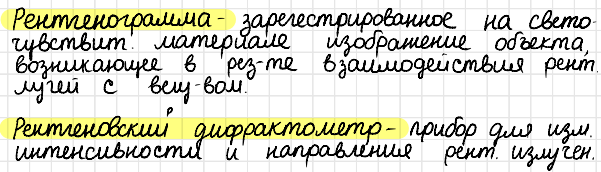 Рентгенограмма - зарегестрированное на свето-
чувствит. материале изображение объекта,
возникающее в рез-те взаимодействия рент.
лучей с вещ-вом.
Рентгеновский дифрактометр - прибор для изм.
интенсивности и направления рент. излучен.